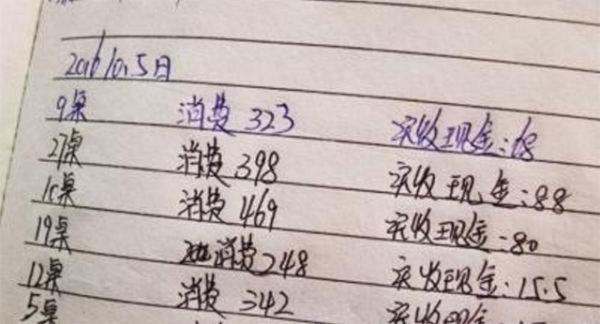 2016 10.5日
9桌 消费 323 实收现金:68
27桌 消费 398 实收现金:88
消费 469 实收现金:80
19桌 消费248 实收现金:15.5
12桌 消费 342 实收现金:
5桌